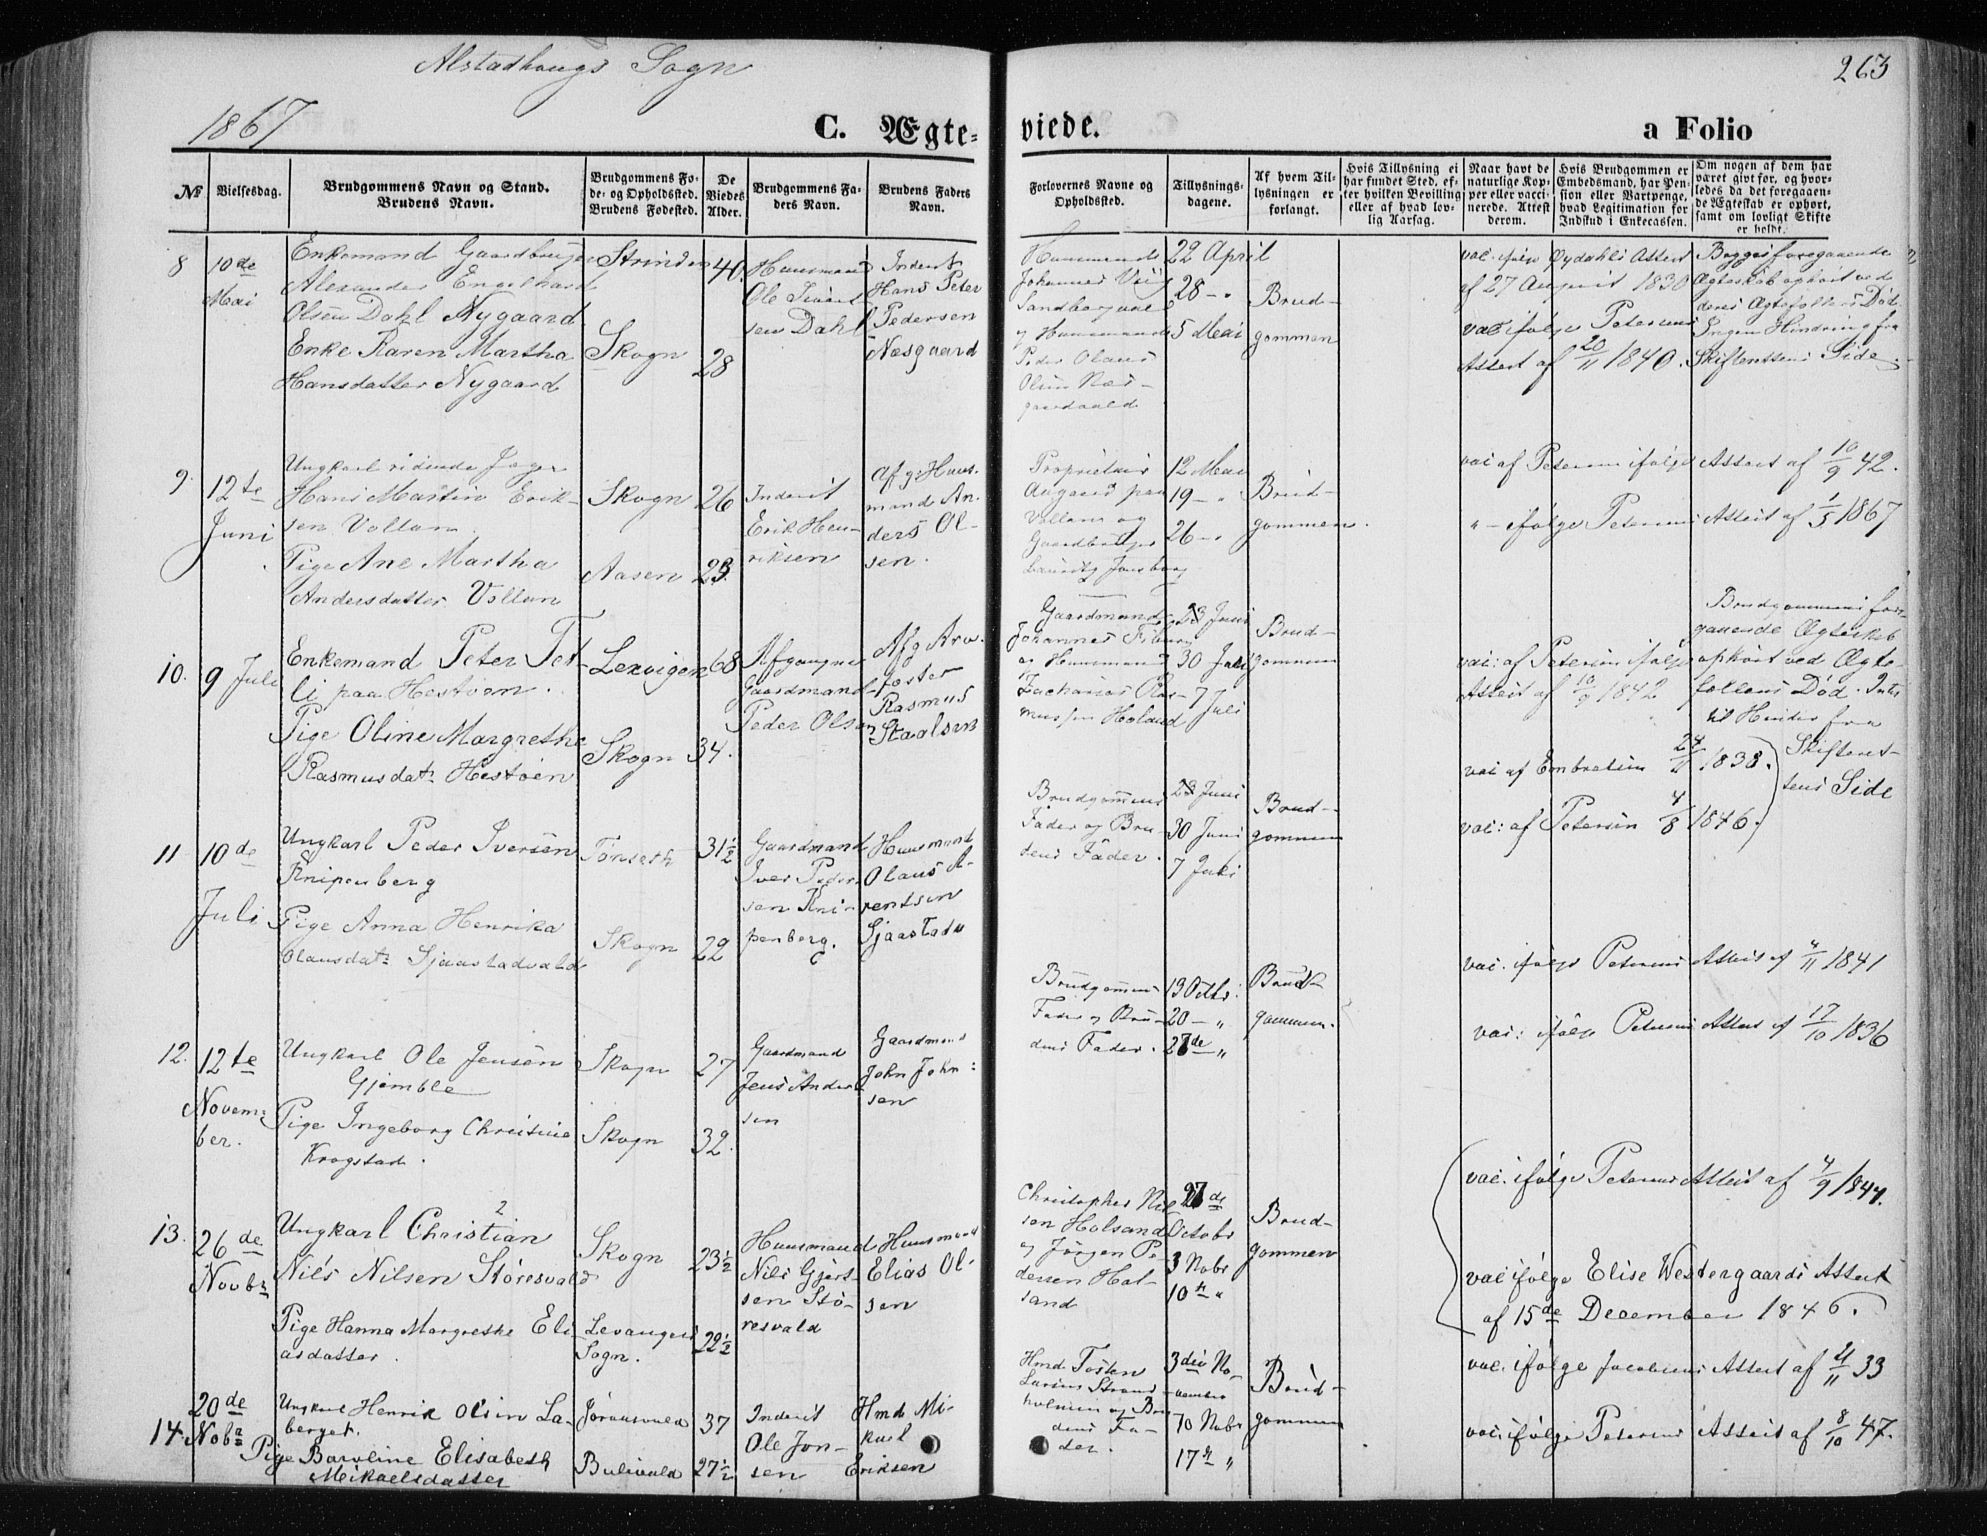 Alstadhougs Sogn
263
1867
C. Ægte- viede. a Folio
№
Vielsesdag.
Brudgommens Navn og Stand.
Brudens Navn.
Brudgommens Fø-
de- og Opholdssted.
Brudens Fødested.
De
Viedes
Alder.
Brudgommens Fa-
ders Navn.
Brudens Faders
Navn.
Forlovernes Navne og
Opholdssted.
Tillysnings-
dagene.
Af hvem Til-
lysningen er
forlangt.
Hvis Tillysning ei
har fundet Sted, ef-
ter hvilken Bevilling
eller af hvad lov-
lig Aarsag.
Naar havt de
naturlige Kop-
per eller vacci-
nerede. Attest
derom.
Hvis Brudgommen er
Embedsmand, har Pen-
sion eller Vartpenge,
hvad Legitimation for
Indskud i Enkecassen.
Om nogen af dem har
været givt før, og hvor-
ledes da det foregaaen-
de Ægteskab er ophørt,
samt om lovligt Skifte
er holdt.
8
10de
Mai
Enkemand Gaardbruger
Alexander Engelhard
Olsen Dahl Nygaard
Enke Karen Martha
Hansdatter Nygaard
Strinden
Skogn
40
28
Huusmand
Ole
sen Dahl
Inderst
Hans Peter
Pedersen
Næsgaard
Huusmand
Johannes
og Huusmand
Peder Olaus
Olsen Næs-
gaardvald
22 April
28 - "
5 Mai
Brud-
gommen
vac. ifølge Øydahls Attest
af 27 August 1830
vac ifølge Petersens
Attest af 20/11 1840.
Begges foregaaende
Ægteskab ophørt ved
deres Ægtefolks Død.
Ingen Hindring fra
Skifterettens Side.
9.
12te
Juni
Ungkarl ridende Jæger
Hans Martin Erik-
sen Vollan
Pige Ane Martha
Andersdatter Vollan
Skogn
Aasen
26
23
Inderst
Erik Hen-
riksen
Afg. Huus-
mand An-
ders Ol-
sen.
Proprietair
Aagaard paa
Vollan og
Gaardbruger
12 Mai
19 - "
26 - "
Brud-
gommen.
vac af Petersen ifølge Attest af 10/9 42.
" - ifølge Petersens Attest af 1/5 1867
10.
9 Juli
Enkemand Peter Tet-
li paa Hestøen.
Pige Oline Margrethe
Rasmusdatr Hestøen
Lexvigen
Skogn
68
34.
Afgangne
Gaardmand
Peder Olsen
Afg. Arv-
fæster
Rasmus
Staalsen
Gaardmand
Johannes
og Huusmand
Zacharias Ras-
mussen Holand
23 Juni
30 Juli
7 Juli
Brud-
gommen
vac: af Petersen ifølge
Attest af 10/9 1842
vac af Embretsen 24/11 1838.
Brudgommens fore-
gaaende Ægteskab
ophørt ved Ægte-
fællens Død. Intet
til Hinder fra
Skifteret-
tens Side
11
10de
Juli
Ungkarl Peder Iversen
Knipenberg
Pige Anna Henrika
Olausdatr Gjaastadvald
Tønseth
Skogn
31½
22
Gaardmand
Iver Peder-
sen Kni-
penberg.
Huusmand
Olaus A-
rentsen
Gjaastadv
Brudgommens
Fader og Bru-
dens Fader.
23 Juni
30 Juni
7 Juli
Brud-
gommen
vac: af Petersen 4/8 1846.
vac. ifølge Petersens Attest af 4/11 1841
12.
12te
Novem-
ber.
Ungkarl Ole Jensen
Gjemble
Pige Ingeborg Christine
Krogstad.
Skogn
Skogn
27
32.
Gaardmand
Jens Ander-
sen
Gaardmand
John John-
sen
Brudgommens
Fader og Bru-
dens Fader.
13 Octbr.
20 - "
27de "
Brud-
gommen.
vac: ifølge Petersens Attest af 17/10 1836
13.
26de
Novbr
Ungkarl Christian
Nils Nilsen Støresvald
Pige Hanna Margrethe Eli-
asdatter.
Skogn
Levangers
Sogn.
23½
22½
Huusmand
Nils Gjert-
sen Stø-
resvald
Huusmand
Elias Ol-
sen
Christopher Nil-
sen Holsand
og Jørgen Pe-
dersen Hol-
sand
27de
Octobr
3 Nobr
10de "
Brud-
gommen
vac. ifølge Petersens Attest af 4/9 1844.
vac ifølge Elise Westergaards Attest
af 15de December 1846.
14
20de
Nobr
Ungkarl Henrik Olsen La-
berget.
Pige Baroline Elisabeth
Mikaelsdatter
37
27½
Inderst
Ole Jon-
sen
Hmd Mi-
kael
Eriksen
Hmd Tosten
Larsen Strand-
holmen og Bru-
dens Fa-
der.
3die No-
vember
10 Nobr
17de "
Brud-
gommen
vac. ifølge Jacobsens Attest af 21/11 33
vac. ifølge Petersens Attest af 8/10 47.